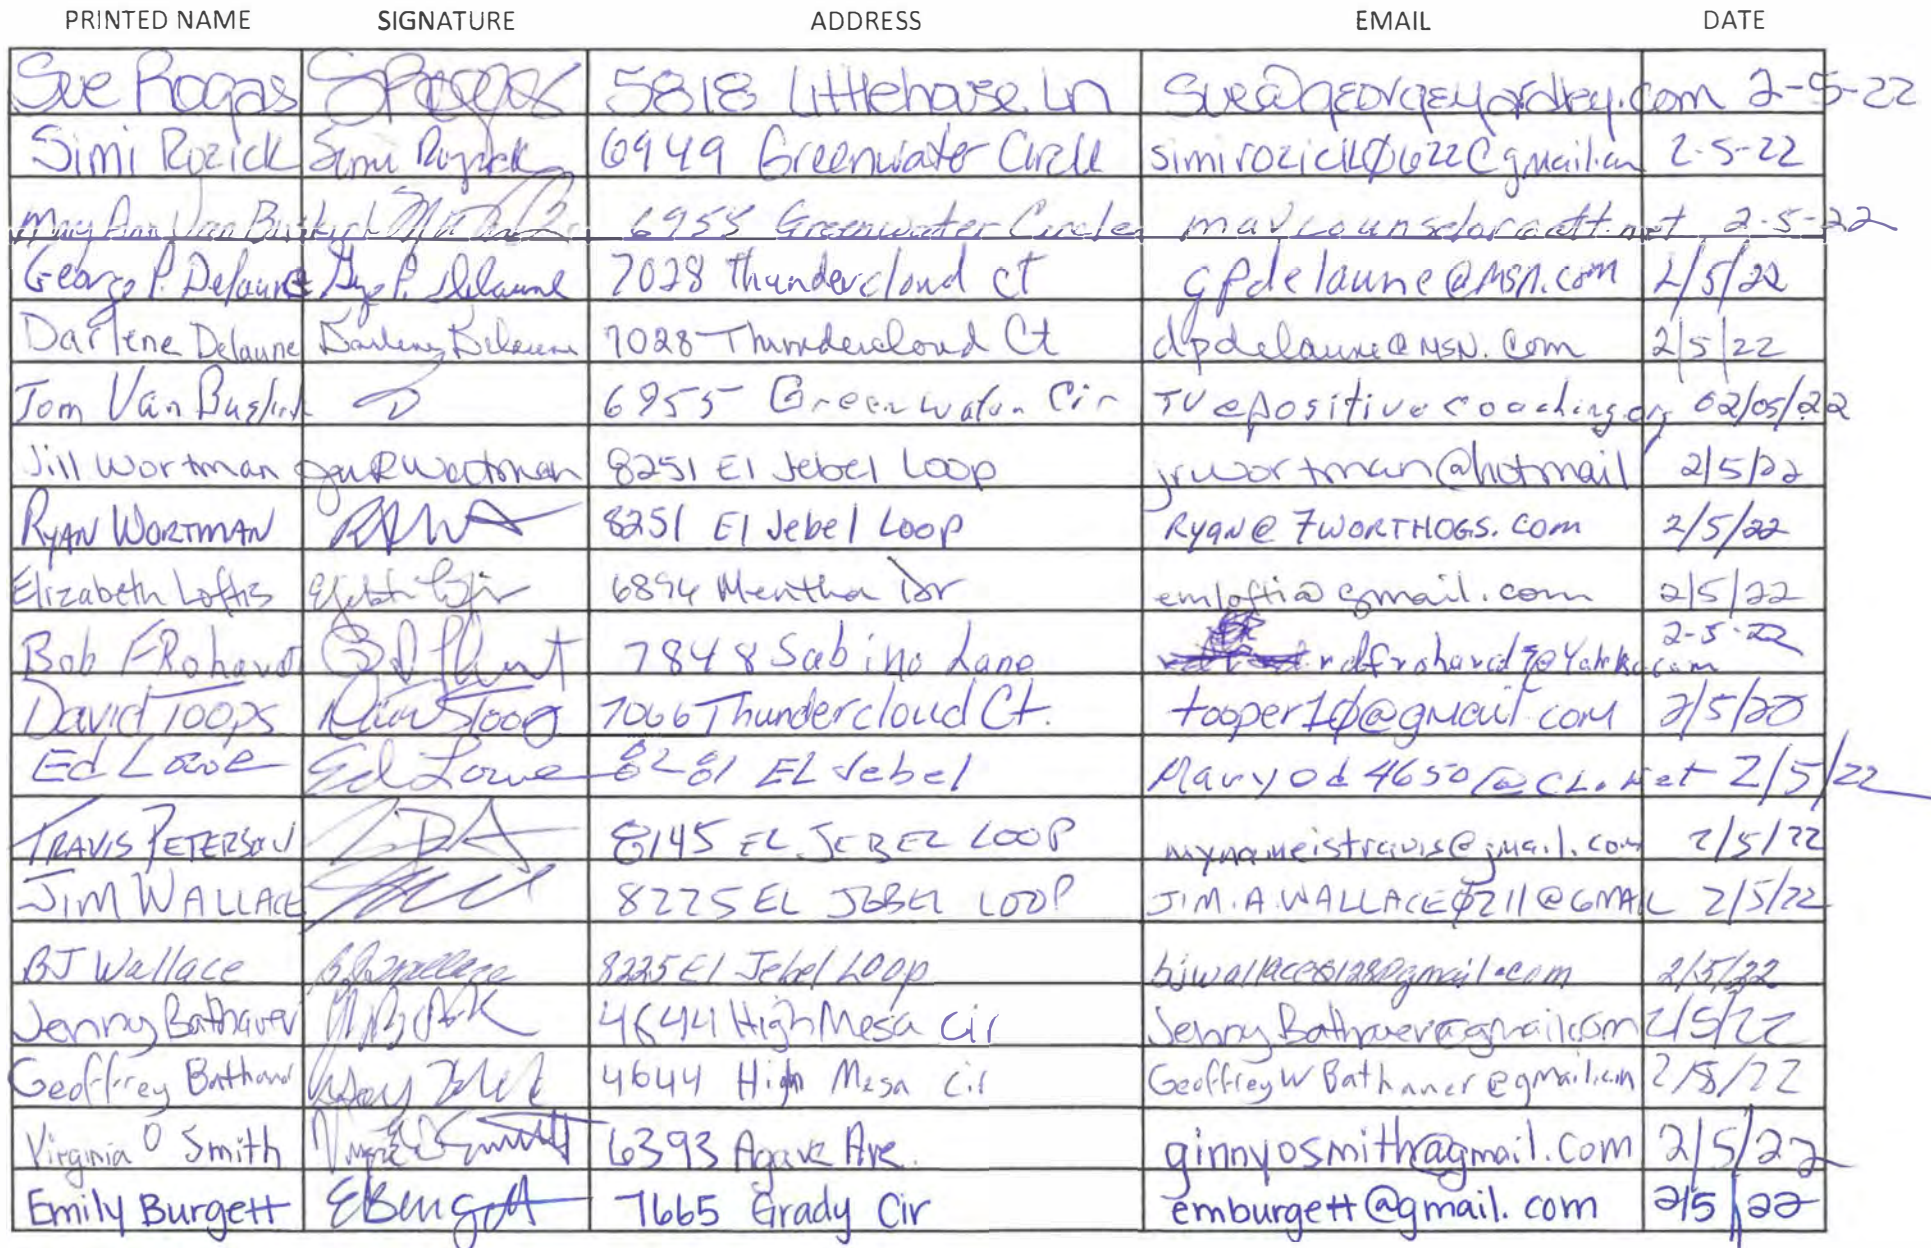 PRINTED NAME SIGNATURE ADDRESS EMAIL DATE
Sue Rogas SRogas 5818 Littlehorse Ln sue@georgeyardley.com 2-5-22
Simi Rozick Simi Rozick 6949 Greenwater Circle simirozick0622@gmail.com 2-5-22
Mary Ann Van Buskirk 6955 Greenwater Circle mavcounselor@att.net 2-5-22
George P. Delaune P. Delaune 7028 Thundercloud ct gpdelaune@msn.com 2/5/22
Darlene Delaune Darlene Delaune 7028 Thundercloud Ct dpdelaune@MSN.Com 2/5/22
Tom Van Buskirk 6955 Greenwater Cir TV@positivecoaching.org 02/05/22
Jill Wortman Wortman 8251 El Jebel Loop jrwortman@hotmail 2/5/22
RYAN WORTMAN 8251 El Jebel Loop RYAN@7WORTHOGS.COM 2/5/22
Elizabeth Loftis 6894 Mentha Dr emlofti@gmail.com 2/5/22
Bob FRohardt 7848 Sabino Lane 2-5-22
David Toops Toops 7066 Thundercloud Ct. tooper10@gmail.com 2/5/20
Ed Lowe Ed Lowe 8281 EL Jebel 2/5/22
TRAVIS PETERSON 8145 EL JEBEL LOOP mynameistravis@gmail.com 2/5/22
JIM WALLACE 8225 EL JEBEL LOOP JIM.A.WALLACE0211@GMAIL 2/5/22
BJ Wallace BJ Wallace 8225 El Jebel Loop bjwallace8128@gmail.com 2/5/22
Jenny Bathauer 4644 High Mesa Cir JennyBathauer@gmail.com 2/5/22
Geoffrey Bathauer 4644 High Mesa Cir GeoffreyWBathauer@gmail.com 2/5/22
Virginia O Smith Smith 6393 Agave Ave. ginnyosmith@gmail.com 2/5/22
Emily Burgett EBurgett 7665 Grady Cir emburgett@gmail.com 2/5/22